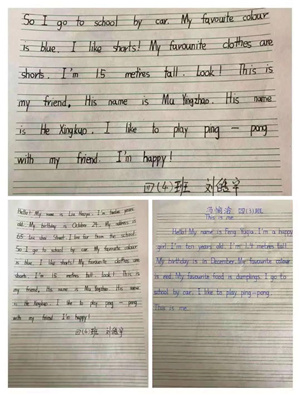 So I go to school by car. My favourite colour
is blue. I like shorts! My favourinte clothes are
shorts. I'm 15 metres tall. Look! This is
my friend, His name is Mu Yingzhao. His name
is He Xingkuo. I like to play ping - pong
with my friend. I'm happy!
四(4)班
Hello! My name is Liu Haoyu. I'm twelve years
old. My birthday is October 24. My address is
Street. I live far from the school.
So I go to school by car. My favourite colour
is blue. I like shorts! My favourinte clothes are
shorts. I'm 15 metres tall. Look! This is
my friend, His name is Mu Yingzhao. His name
is He Xingkuo. I like to play ping - pong
with my friend. I'm happy!
四(4)班
This is me
Hello! My name is Feng Yujia. I'm a happy
girl. I'm ten years old. I'm 1.4 metres tall.
My birthday is in December. My favourite colour
is red. My favourite food is dumplings. I go to
school by car. I like to play ping-pong.
This is me.